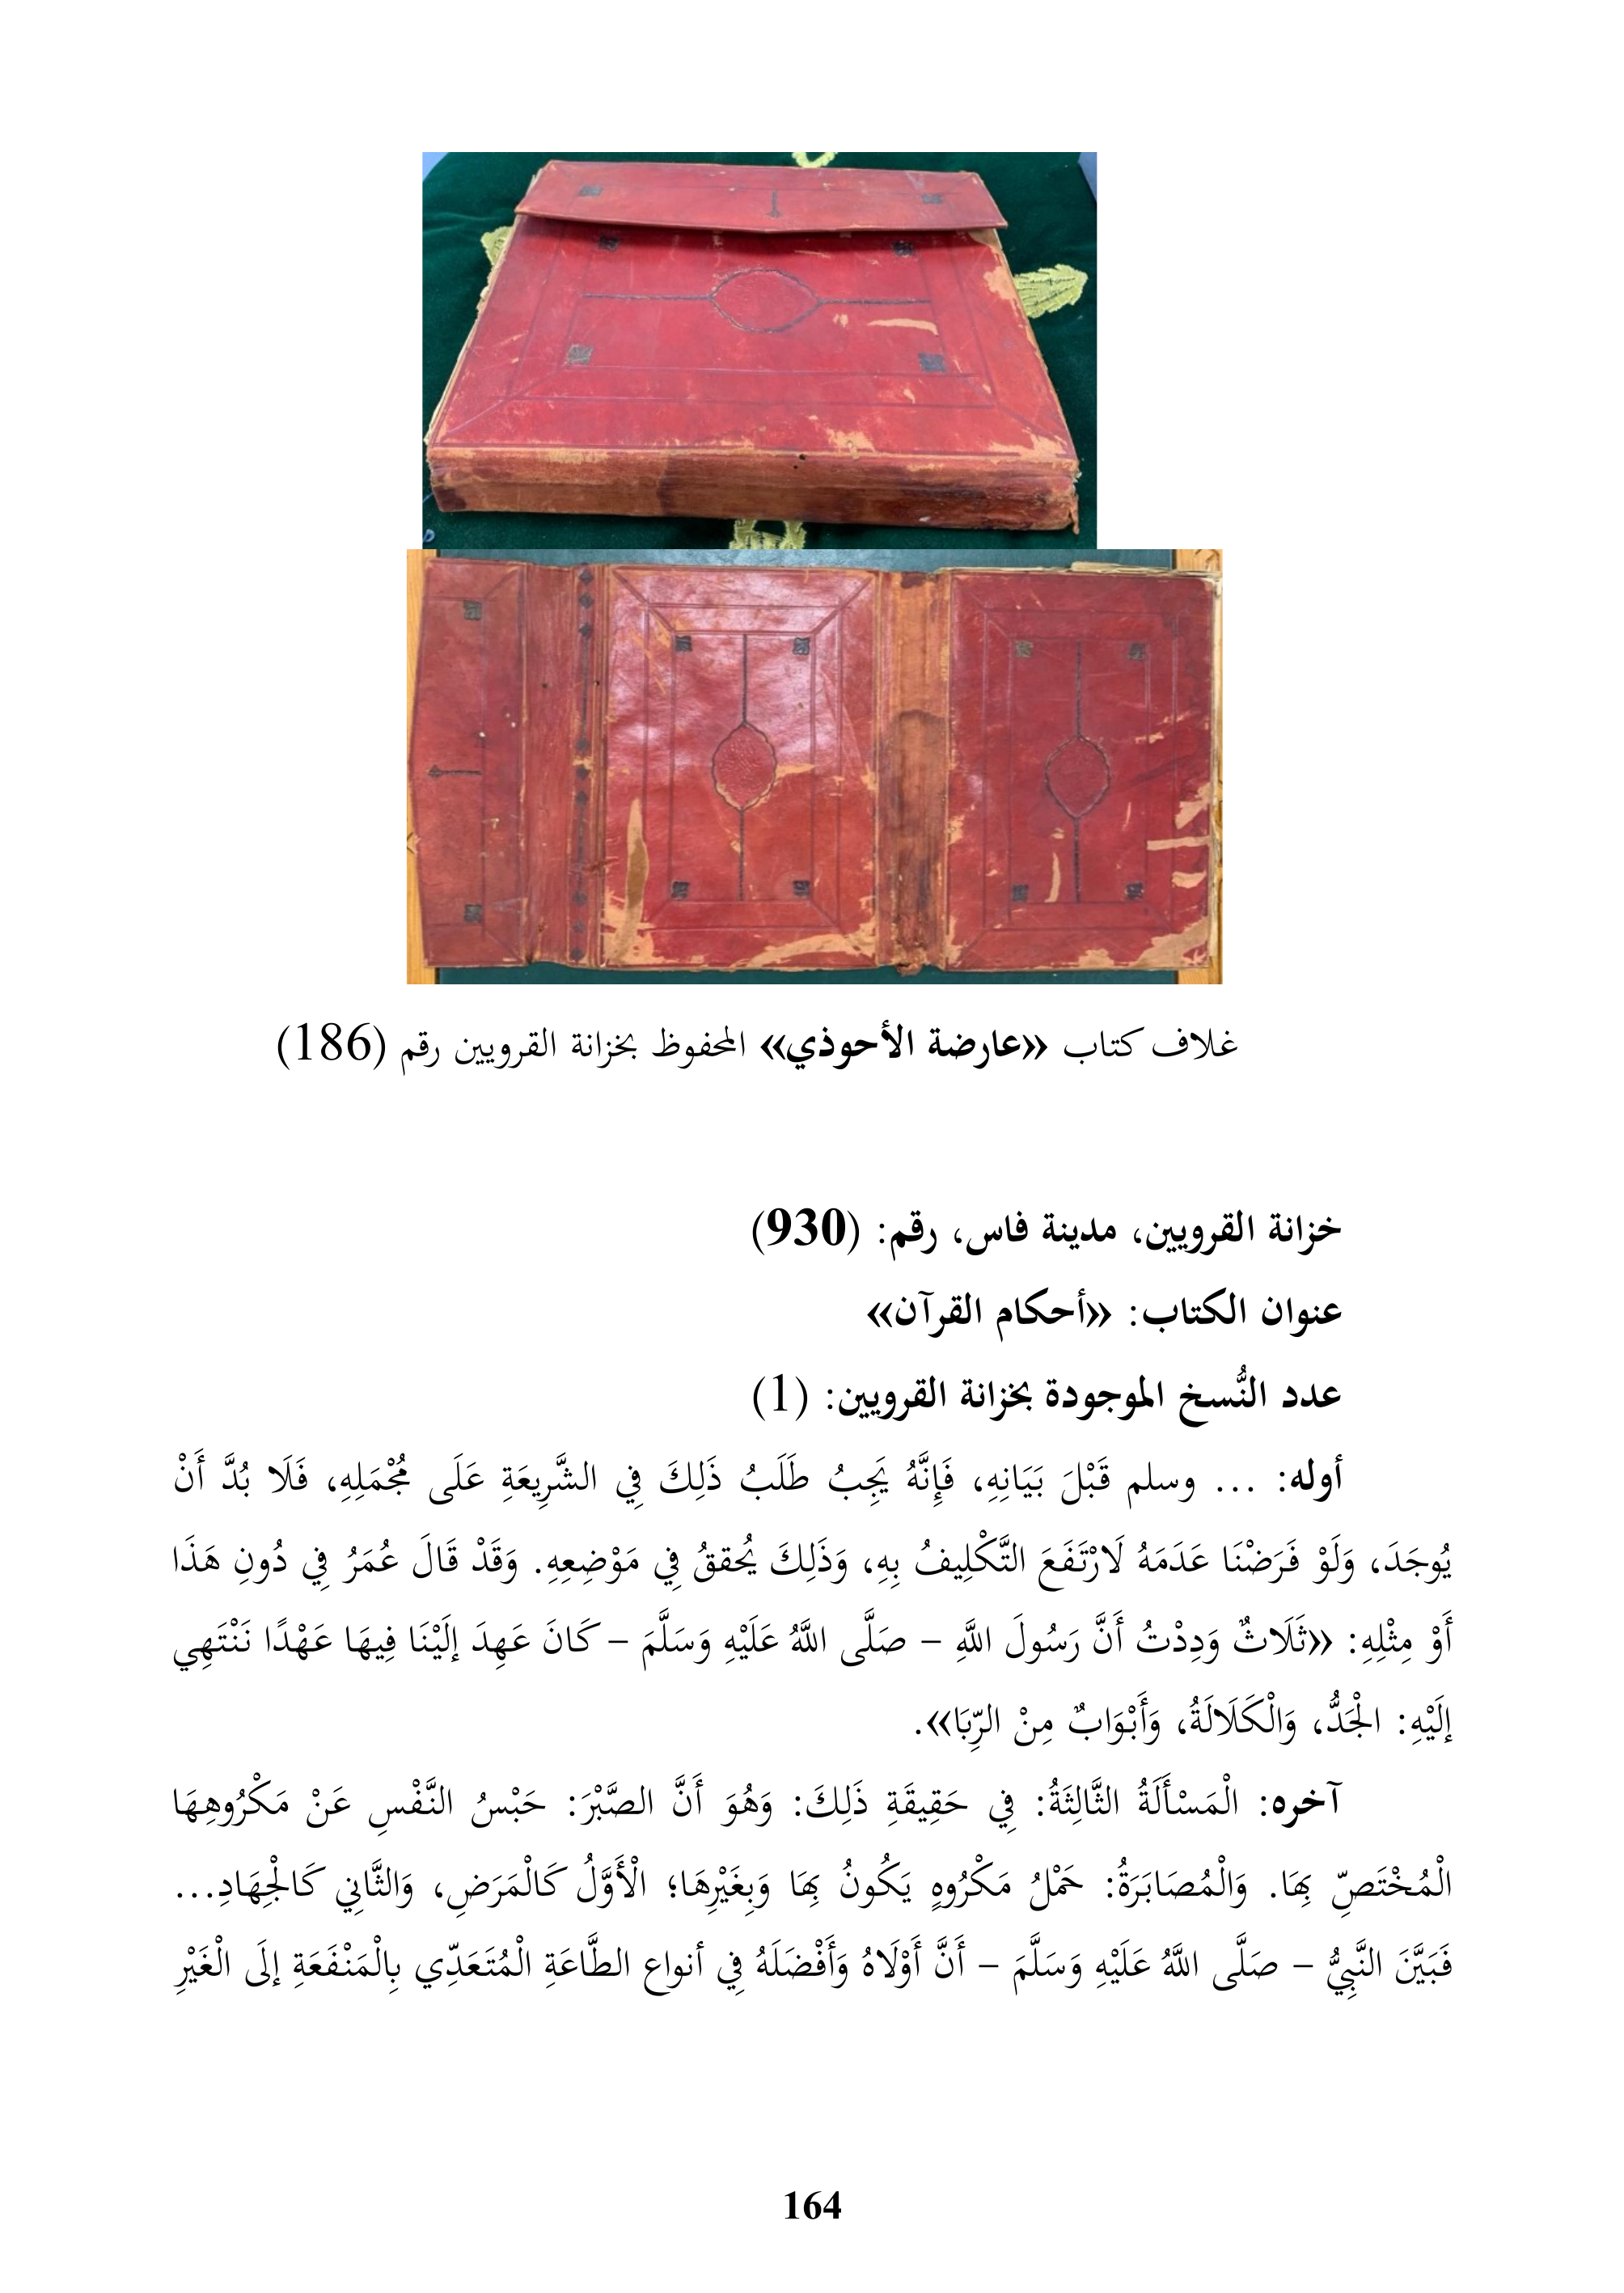 غلاف كتاب «عارضة الأحوذي» المحفوظ بخزانة القرويين رقم (186)
خزانة القرويين، مدينة فاس، رقم: (930)
عنوان الكتاب: «أحكام القرآن»
عدد النُّسخ الموجودة بخزانة القرويين: (1)
أوله: ... وسلم قَبْلَ بَيَانِهِ، فَإِنَّهُ يَجِبُ طَلَبُ ذَلِكَ فِي الشَّرِيعَةِ عَلَى مُجْمَلِهِ، فَلَا بُدَّ أَنْ
يُوجَدَ، وَلَوْ فَرَضْنَا عَدَمَهُ لَارْتَفَعَ التَّكْلِيفُ بِهِ، وَذَلِكَ يُحققُ فِي مَوْضِعِهِ. وَقَدْ قَالَ عُمَرُ فِي دُونِ هَذَا
أَوْ مِثْلِهِ: «ثَلَاثٌ وَدِدْتُ أَنَّ رَسُولَ اللَّهِ – صَلَّى اللَّهُ عَلَيْهِ وَسَلَّمَ – كَانَ عَهِدَ إلَيْنَا فِيهَا عَهْدًا نَنْتَهِي
إلَيْهِ: الْجَدُّ، وَالْكَلَالَةُ، وَأَبْوَابٌ مِنْ الرِّبَا».
آخره: الْمَسْأَلَةُ الثَّالِثَةُ: فِي حَقِيقَةِ ذَلِكَ: وَهُوَ أَنَّ الصَّبْرَ: حَبْسُ النَّفْسِ عَنْ مَكْرُوهِهَا
الْمُخْتَصِّ بِهَا. وَالْمُصَابَرَةُ: حَمْلُ مَكْرُوهٍ يَكُونُ بِهَا وَبِغَيْرِهَا؛ الْأَوَّلُ كَالْمَرَضِ، وَالثَّانِي كَالْجِهَادِ...
فَبَيَّنَ النَّبِيُّ – صَلَّى اللَّهُ عَلَيْهِ وَسَلَّمَ – أَنَّ أَوْلَاهُ وَأَفْضَلَهُ فِي أنواع الطَّاعَةِ الْمُتَعَدِّي بِالْمَنْفَعَةِ إلَى الْغَيْرِ
164